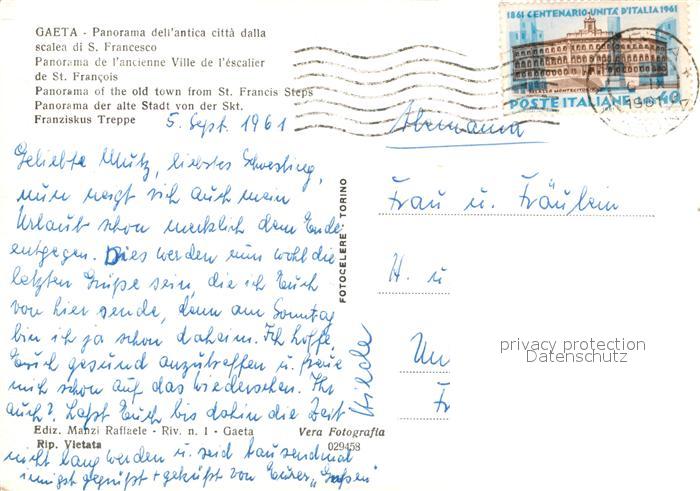 GAETA - Panorama dell'antica città dalla
scalea di S. Francesco
Panorama de l'ancienne Ville de l'éscalier
de St. François
Panorama of the old town from St. Francis Steps
Panorama der alte Stadt von der Skt.
Franziskus Treppe
5. Sept. 1961
1861 CENTENARIO UNITÀ D'ITALIA 1961
PALAZZO MONTECITORIO
POSTE ITALIANE LIRE 40
Alemania
Geliebte Mutz, liebstes Schwesting,
nun neigt sich auch mein
Urlaub schon merklich dem Ende
entgegen. Dies werden nun wohl die
letzten Grüße sein, die ich Euch
von hier sende, denn am Sonntag
bin ich ja schon daheim. Ich hoffe,
Euch gesund anzutreffen u. freue
mich schon auf das Wiedersehen. Ihr
auch? Laßt Euch bis dahin die Zeit
nicht lang werden u. seid tausendmal
innigst gegrüßt + geküßt von Eurer „Großen"
Hilde
FOTOCELERE TORINO
Frau u. Fräulein
H. u
Un
Fr
privacy protection
Datenschutz
Ediz. Manzi Raffaele - Riv. n. 1 - Gaeta
Rip. Vietata
Vera Fotografia
029458